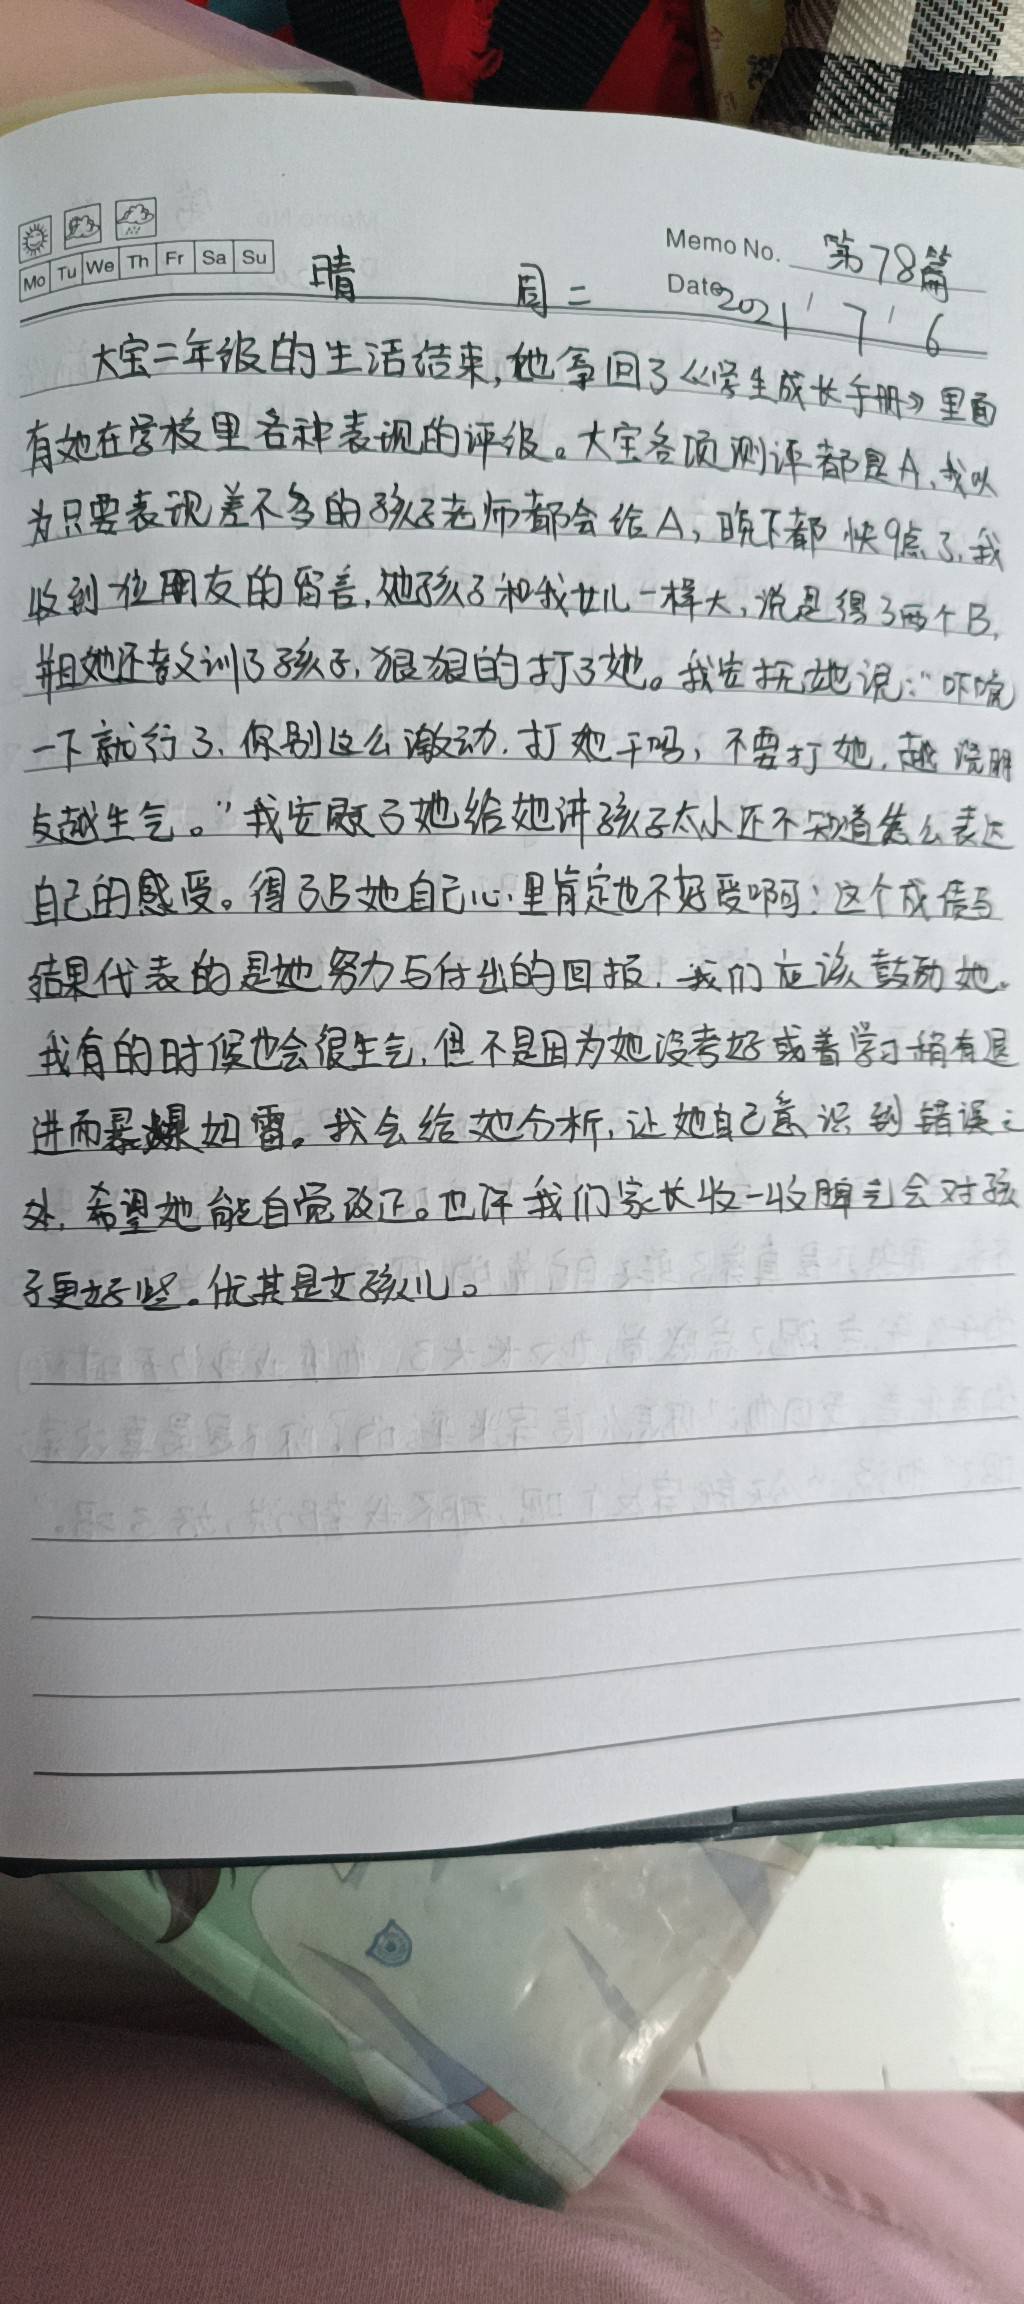 Memo No. 第78篇
Mo Tu We Th Fr Sa Su 晴 周二 Date 2021 7 6
大宝二年级的生活结束,她拿回了《学生成长手册》里面
有她在学校里各种表现的评级。大宝各项测评都是A,我以
为只要表现差不多的孩子老师都会给A,晚下都快9点了,我
收到一位朋友的留言,她孩子和我女儿一样大,说是得了两个B,
并且她还教训了孩子,狠狠的打了她。我安抚她说:“吓唬
一下就行了,你别这么激动,打她干吗,不要打她,越说朋
友越生气。”我安慰了她给她讲孩子太小还不知道怎么表达
自己的感受。得了B她自己心里肯定也不好受啊!这个成绩与
结果代表的是她努力与付出的回报,我们应该鼓励她。
我有的时候也会很生气,但不是因为她没考好或着学习稍有退
进而暴爆如雷。我会给她分析,让她自己意识到错误之
处,希望她能自觉改正。也许我们家长收一收脾气会对孩
子更好些。优其是女孩儿。